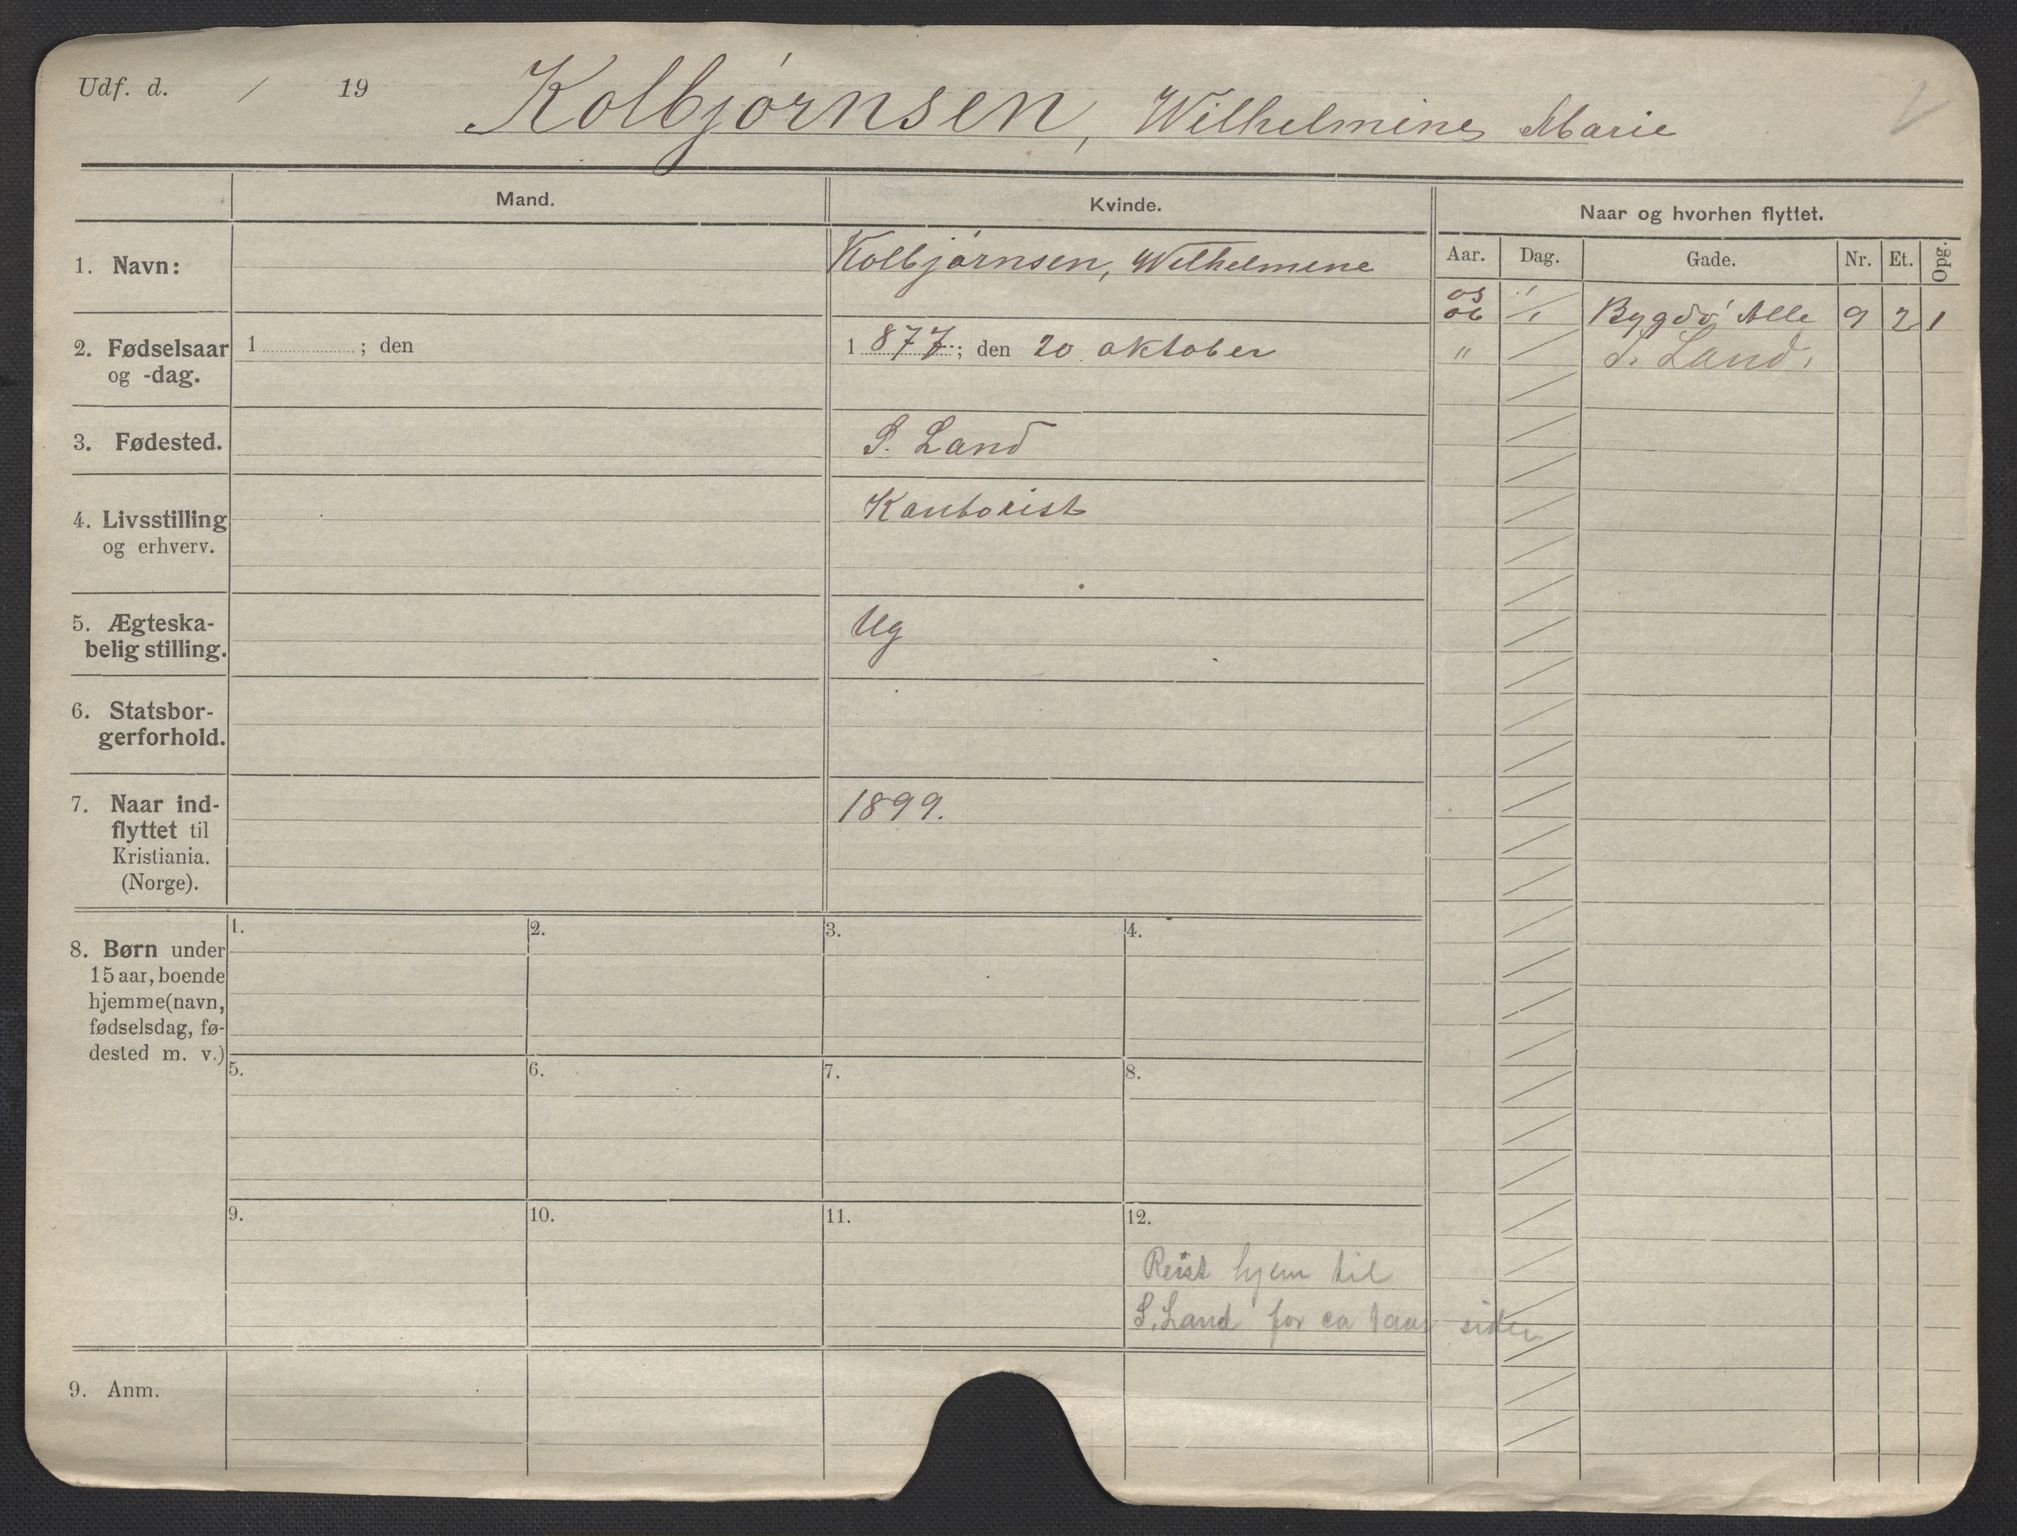 Udf. d. / 19 Kolbjørnsen, Wilhelmine Marie
Mand. Kvinde. Naar og hvorhen flyttet.
Aar. Dag. Gade. Nr. Et. Opg.
1. Navn: Kolbjørnsen, Wilhelmine
05
06 1/1 Bygdø Alle 9 2 1
" S. Land.
2. Fødselsaar 1 ; den 1877; den 20 oktober
og -dag.
3. Fødested. S. Land
4. Livsstilling Kontorist
og erhverv.
5. Ægteska-
belig stilling. Ug
6. Statsbor-
gerforhold.
7. Naar ind- 1899.
flyttet til
Kristiania.
(Norge).
8. Børn under
15 aar, boende
hjemme (navn,
fødselsdag, fø-
dested m. v.)
1. 2. 3. 4.
5. 6. 7. 8.
9. 10. 11. 12.
Reist hjem til
S. Land for ca 1 aar siden
9. Anm.